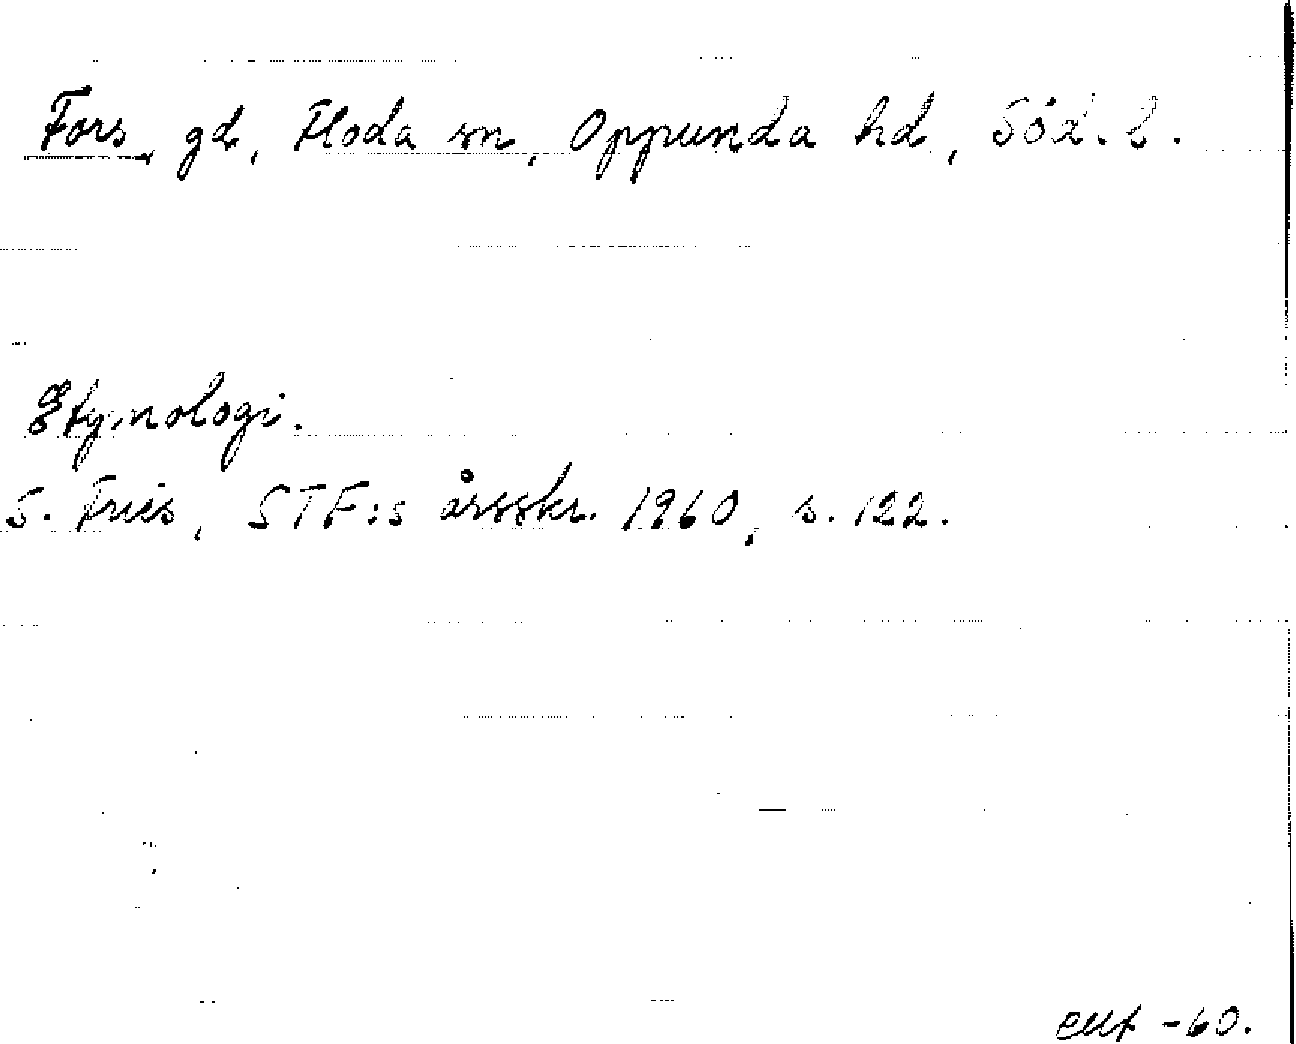 Fors, gd, Floda sn, Oppunda hd, Söd. l.
Etymologi.
S. Fries, STF:s årsskr. 1960, s. 122.
-60.